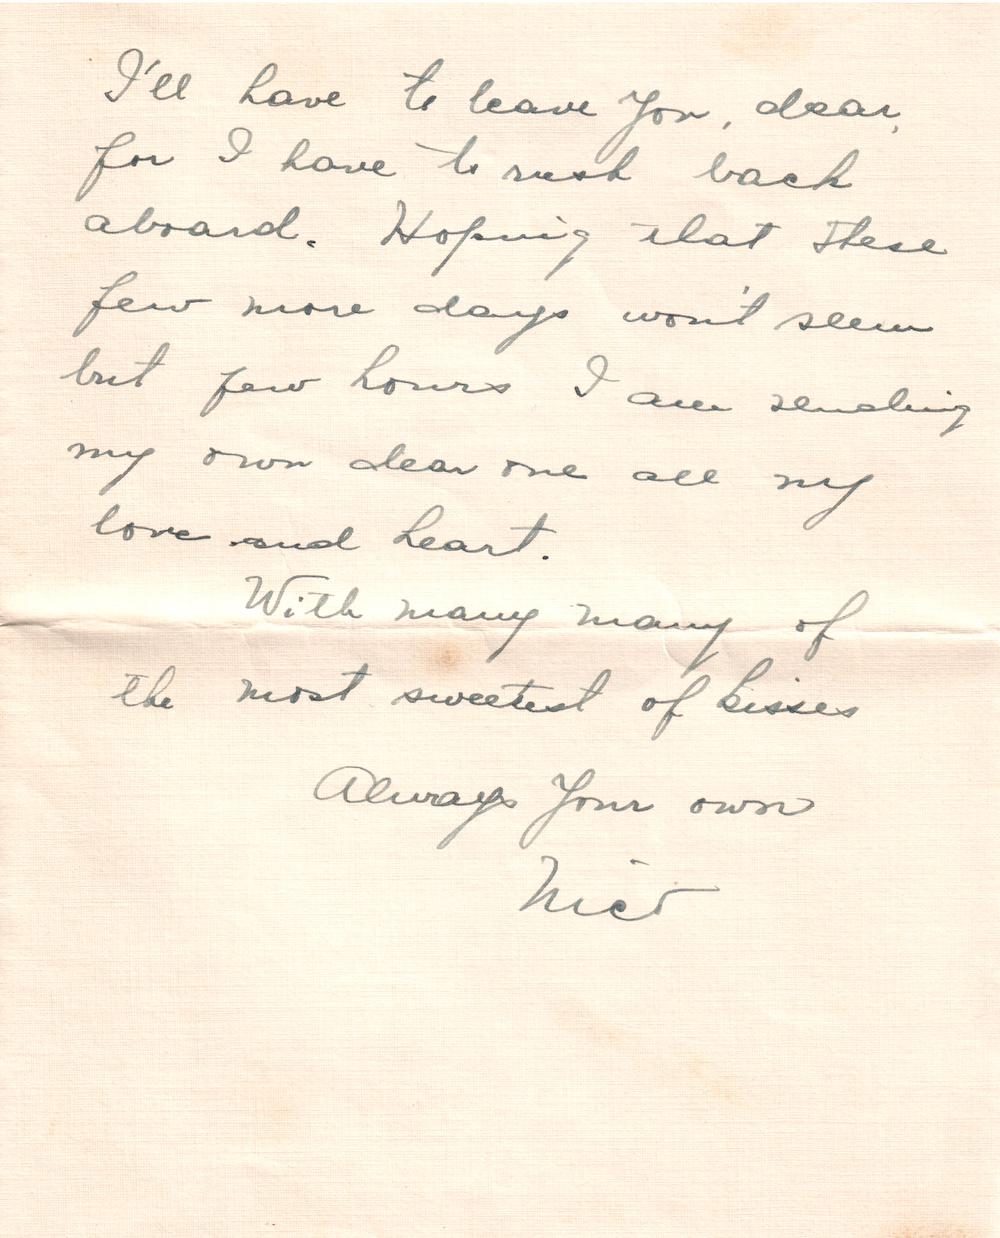 I'll have to leave You, dear,
for I have to rush back
aboard. Hoping that these
few more days won't seem
but few hours I am sending
my own dear one all my
love and heart.
With many many of
the most sweetest of kisses
Always Your own
Nico